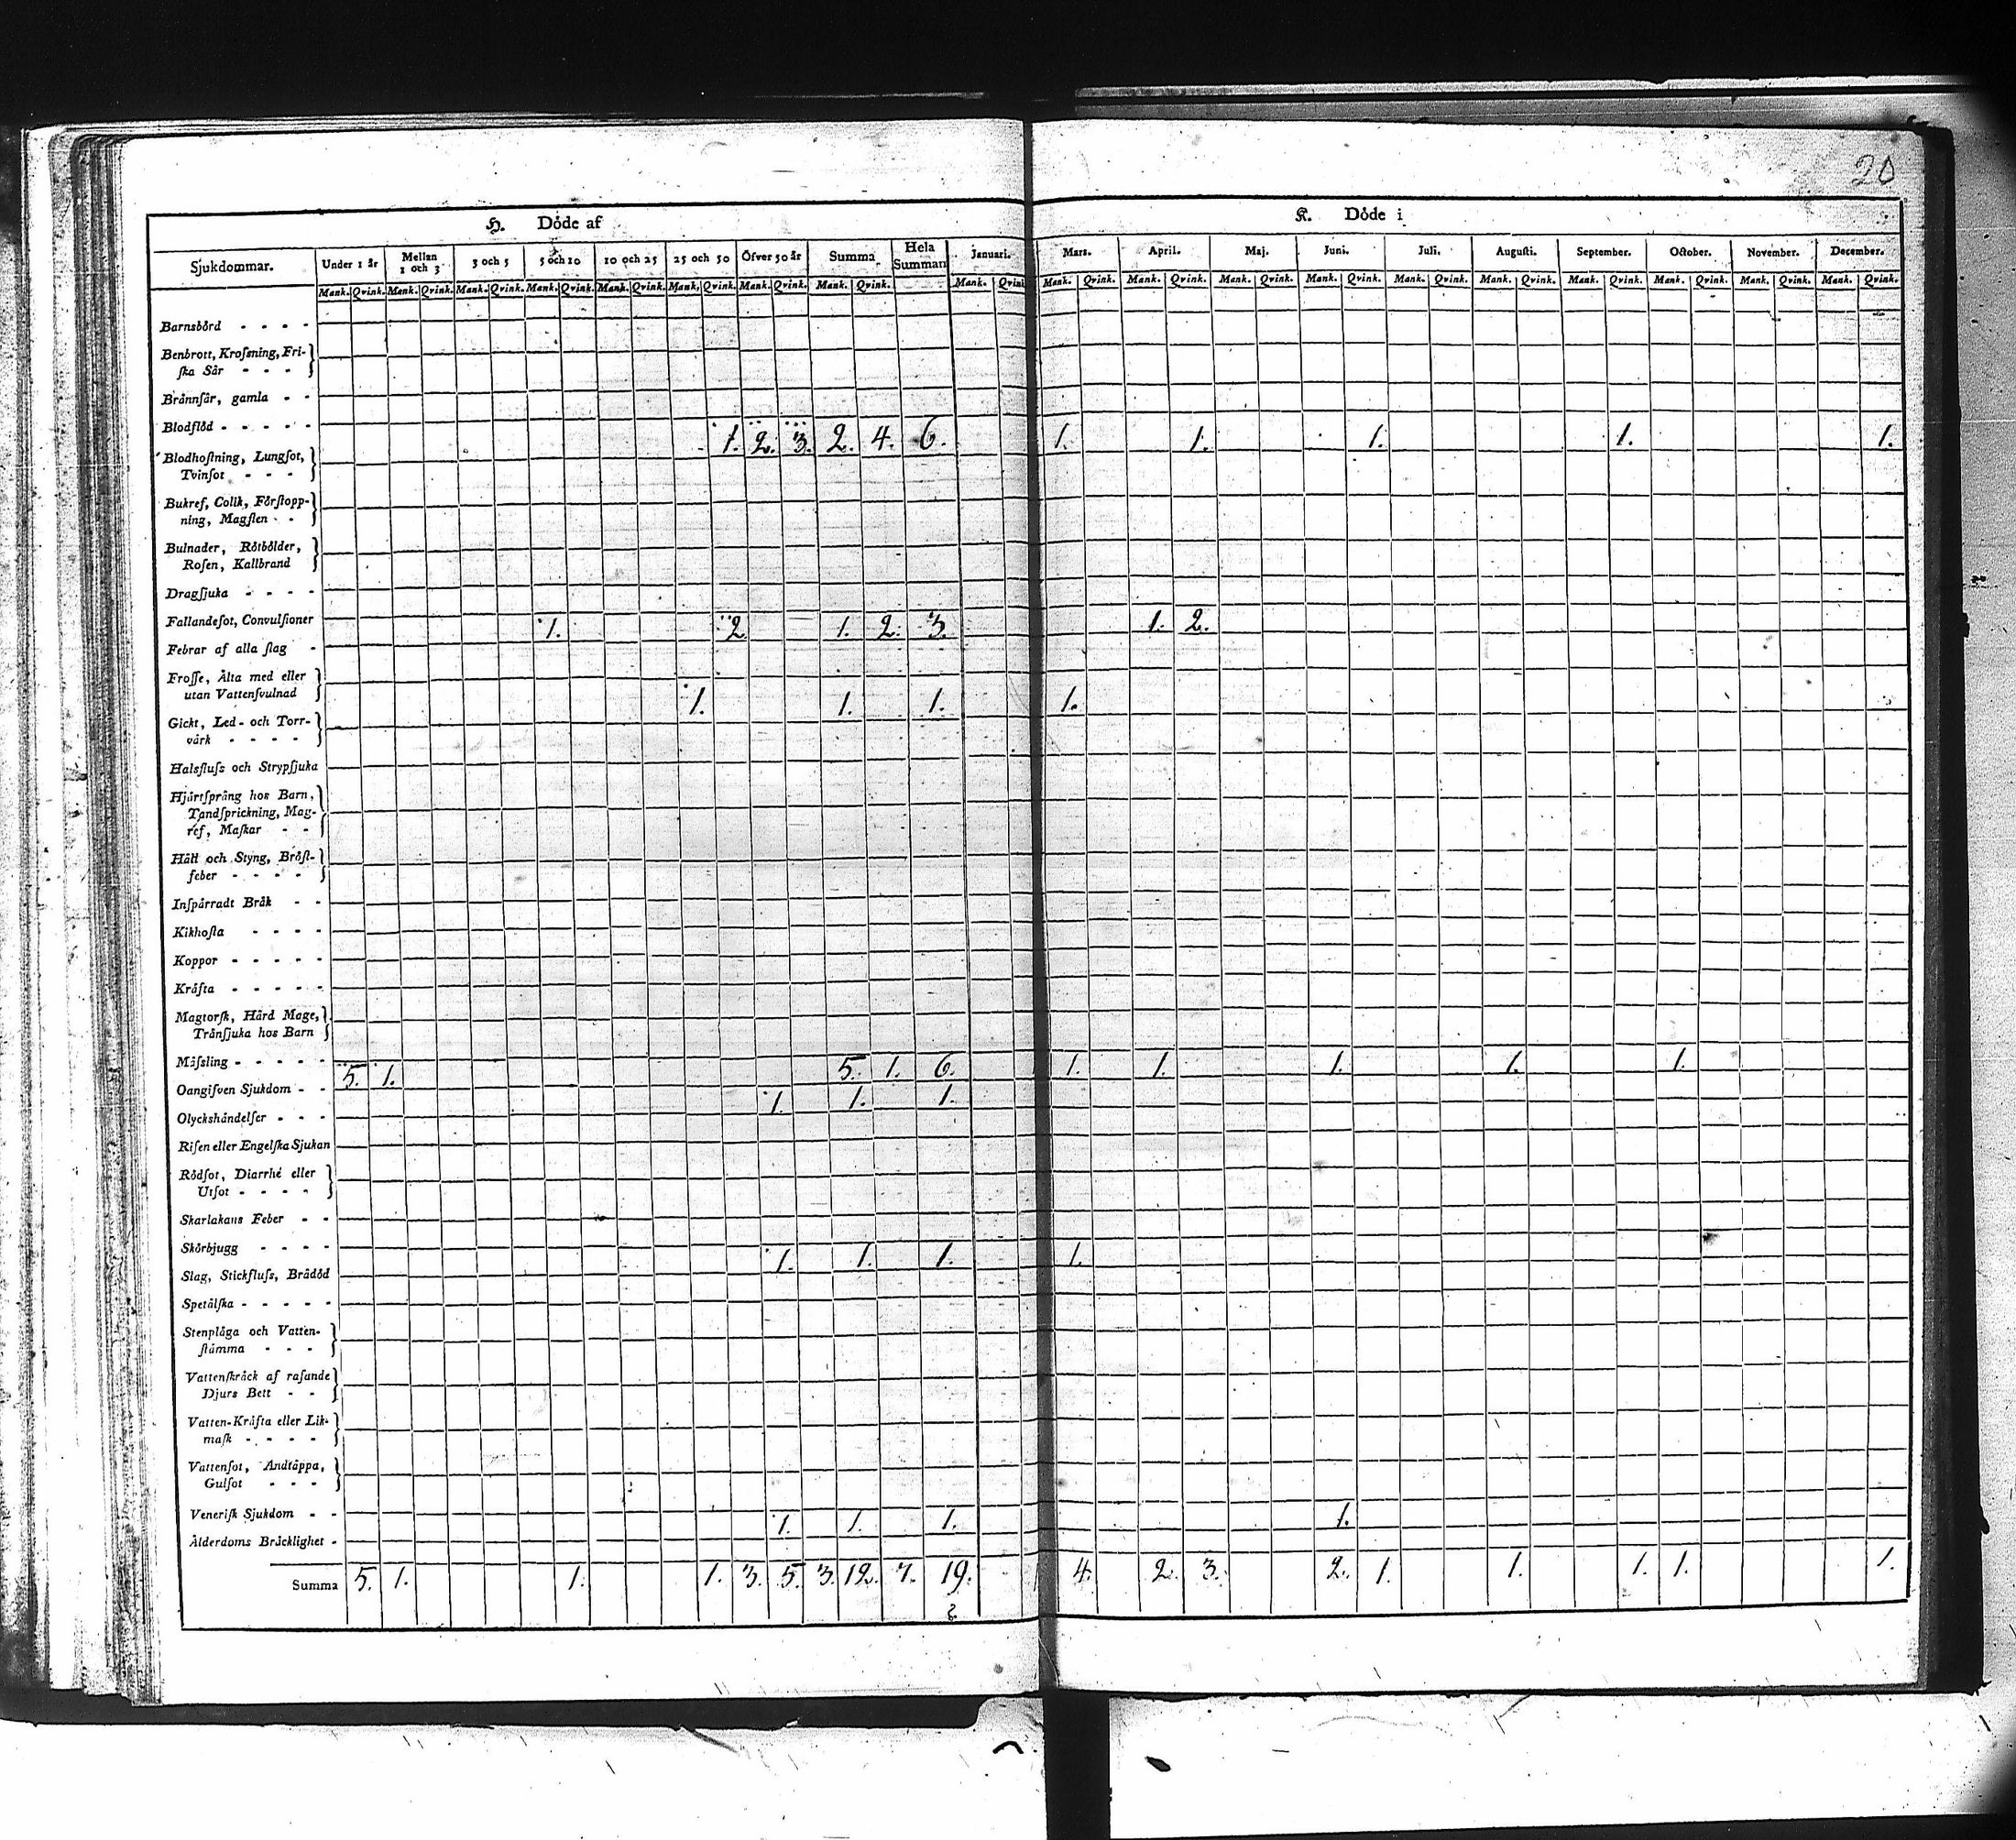 20
H. Döde af
K. Döde i
Sjukdommar. Under 1 år Mellan 1 och 3 3 och 5 5 och 10 10 och 25 25 och 50 Öfver 50 år Summa Hela Summan Januari. Mars. April. Maj. Juni. Juli. Augusti. September. October. November. December.
Mank. Qvink. Mank. Qvink. Mank. Qvink. Mank. Qvink. Mank. Qvink. Mank. Qvink. Mank. Qvink. Mank. Qvink. Mank. Qvink. Mank. Qvink. Mank. Qvink. Mank. Qvink. Mank. Qvink. Mank. Qvink. Mank. Qvink. Mank. Qvink. Mank. Qvink. Mank. Qvink. Mank. Qvink.
Barnsbörd - - - -
Benbrott, Krofsning, Fri-
ſka Sår - - -
Brännſår, gamla - -
Blodflöd - - - - -
1. 2. 3. 2. 4. 6. 1. 1. 1. 1. 1.
Blodhoſtning, Lungſot,
Tvinſot - - -
Bukref, Colik, Förſtopp-
ning, Magſlen - -
Bulnader, Rötbölder,
Roſen, Kallbrand
Dragſjuka - - - -
Fallandeſot, Convulſioner
1. 2. 1. 2. 3. 1. 2.
Febrar af alla ſlag -
Froſſe, Älta med eller
utan Vattenſvulnad
1. 1. 1. 1.
Gickt, Led- och Torr-
värk - - - -
Halsfluſs och Strypſjuka
Hjärtſprång hos Barn,
Tandſprickning, Mag-
ref, Maſkar - -
Håll och Styng, Bröſt-
feber - - - -
Inſpärradt Bråk - -
Kikhoſta - - - -
Koppor - - - - -
Kräfta - - - - -
Magtorſk, Hård Mage,
Tränſjuka hos Barn
Mäſsling - - - - -
5. 1. 5. 1. 6. 1. 1. 1. 1. 1.
Oangifven Sjukdom - -
1. 1. 1.
Olyckshändelſer - - -
Riſen eller Engelſka Sjukan
Rödſot, Diarrhé eller
Utſot - - - -
Skarlakans Feber - -
Skörbjugg - - - -
1. 1. 1. 1.
Slag, Stickfluſs, Brådöd
Spetälſka - - - - -
Stenplåga och Vatten-
ſtämma - - -
Vattenſkräck af raſande
Djurs Bett - -
Vatten-Kräfta eller Lik-
maſk - - - -
Vattenſot, Andtäppa,
Gulſot - - -
Veneriſk Sjukdom - -
1. 1. 1. 1.
Ålderdoms Bräcklighet -
Summa 5. 1. 1. 1. 3. 5. 3. 12. 7. 19. 4. 2. 3. 2. 1. 1. 1. 1. 1.